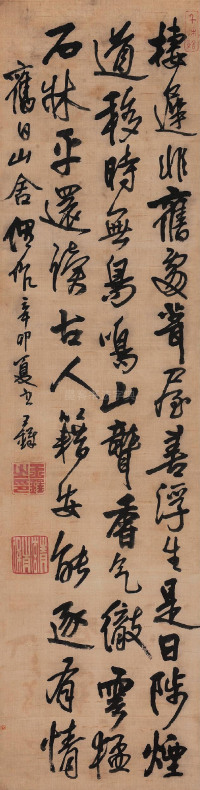 棲遲非舊處浮生是日陟煙
道移時無鳥鳴山聾香气徹雲猛
石牀平還讀古人籍安能逐有情
舊日山舍偶作辛卯夏
王鐸之印